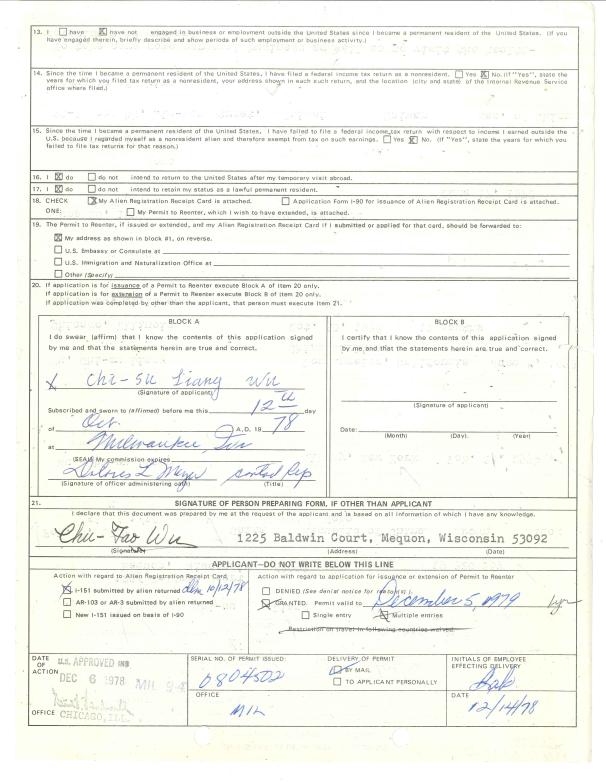 13. I ☐ have ☒ have not engaged in business or employment outside the United States since I became a permanent resident of the United States. (If you
have engaged therein, briefly describe and show periods of such employment or business activity.)
14. Since the time I became a permanent resident of the United States, I have filed a federal income tax return as a nonresident. ☐ Yes ☒ No. (If "Yes", state the
years for which you filed a tax return as a nonresident, your address shown in each such return, and the location (city and state) of the Internal Revenue Service
office where filed.)
15. Since the time I became a permanent resident of the United States, I have failed to file a federal income tax return with respect to income I earned outside the
U.S. because I regarded myself as a nonresident alien and therefore exempt from tax on such earnings. ☐ Yes ☒ No. (If "Yes", state the years for which you
failed to file tax returns for that reason.)
16. I ☒ do ☐ do not intend to return to the United States after my temporary visit abroad.
17. I ☒ do ☐ do not intend to retain my status as a lawful permanent resident.
18. CHECK ☒ My Alien Registration Receipt Card is attached. ☐ Application Form I-90 for issuance of Alien Registration Receipt Card is attached.
ONE: ☐ My Permit to Reenter, which I wish to have extended, is attached.
19. The Permit to Reenter, if issued or extended, and my Alien Registration Receipt Card if I submitted or applied for that card, should be forwarded to:
☒ My address as shown in block #1, on reverse.
☐ U.S. Embassy or Consulate at
☐ U.S. Immigration and Naturalization Office at
☐ Other (Specify)
20. If application is for issuance of a Permit to Reenter execute Block A of Item 20 only.
If application is for extension of a Permit to Reenter execute Block B of Item 20 only.
If application was completed by other than the applicant, that person must execute Item 21.
BLOCK A
I do swear (affirm) that I know the contents of this application signed
by me and that the statements herein are true and correct.
X Chi-Su Liang Wu
(Signature of applicant)
Subscribed and sworn to (affirmed) before me this 12th day
of Oct. A.D. 19 78
at Milwaukee, Win
(SEAL) My commission expires
Dolores L Meyer contact Rep
(Signature of officer administering oath) (Title)
BLOCK B
I certify that I know the contents of this application signed
by me and that the statements herein are true and correct.
(Signature of applicant)
Date:
(Month) (Day). (Year)
21. SIGNATURE OF PERSON PREPARING FORM, IF OTHER THAN APPLICANT
I declare that this document was prepared by me at the request of the applicant and is based on all information of which I have any knowledge.
Chu-Tao Wu 1225 Baldwin Court, Mequon, Wisconsin 53092
(Signature) (Address) (Date)
APPLICANT—DO NOT WRITE BELOW THIS LINE
Action with regard to Alien Registration Receipt Card
☒ I-151 submitted by alien returned dlm 10/12/78
☐ AR-103 or AR-3 submitted by alien returned
☐ New I-151 issued on basis of I-90
Action with regard to application for issuance or extension of Permit to Reenter
☐ DENIED (See denial notice for reason(s).)
☒ GRANTED. Permit valid to December 5, 1979
☐ Single entry ☒ Multiple entries
Restriction on travel in following countries waived:
DATE OF ACTION
U.S. APPROVED INS
DEC 6 1978 MIL 94
OFFICE CHICAGO, ILL.
SERIAL NO. OF PERMIT ISSUED:
6804502
OFFICE
MIL
DELIVERY OF PERMIT
☒ BY MAIL
☐ TO APPLICANT PERSONALLY
INITIALS OF EMPLOYEE
EFFECTING DELIVERY
DATE
12/14/78